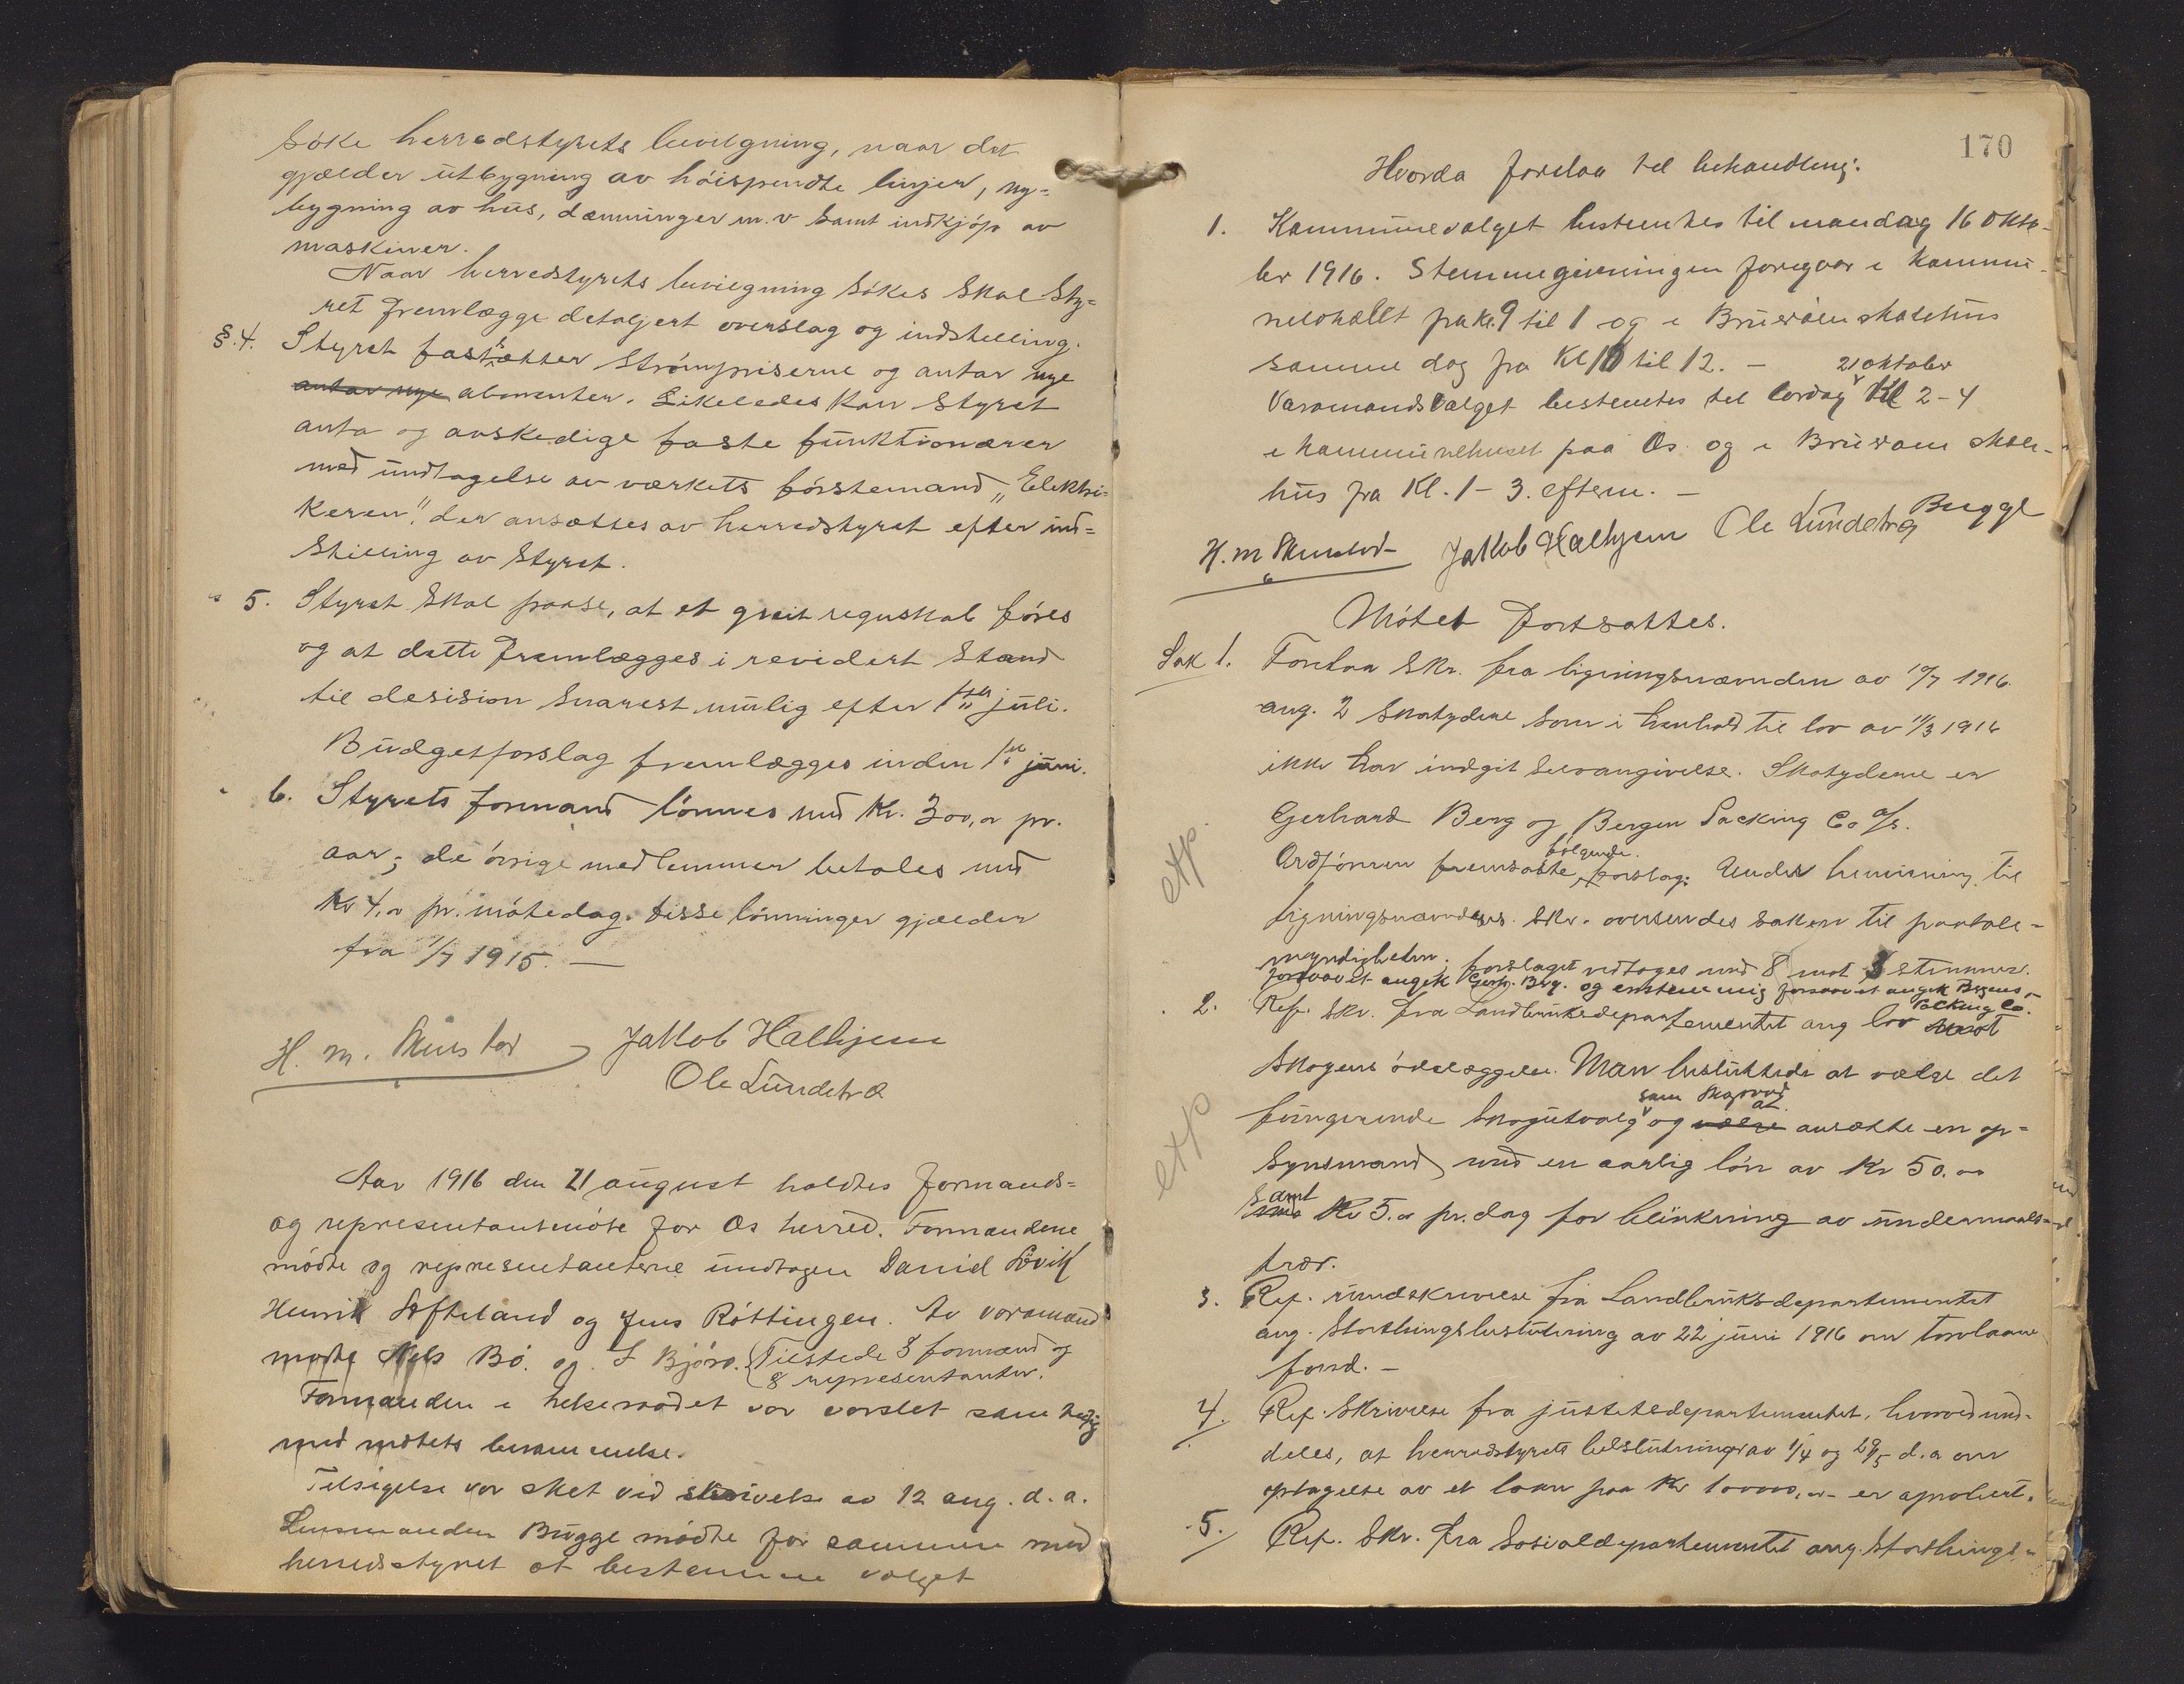 søke herredstyrets bevilgning, naar det
gjælder utbygning av höispendte linjer, ny=
bygning av hus, dæmninger m.v samt indkjöp av
maskiner.
Naar herredstyrets bevilgning søkes skal Sty=
ret fremlægge detaljert overslag og indstilling.
§.4. Styret fastsætter strömpriserne og antar nye
antar nye abonenter. Likeledes kan Styret
anta og avskedige faste funktionærer
med undtagelse av værkets förstemand "Elektri=
keren", der ansættes av herredstyret efter ind=
stilling av Styret.
" 5. Styret skal paase, at et greit regnskab föres
og at dette fremlægges i revidert Stand
til desision snarest mulig efter 1ste juli.
Budgetforslag fremlægges inden 1ste juni.
" 6. Styrets formand lönnes med Kr. 300,00 pr.
aar; de övrige medlemmer betales med
Kr 4,00 pr. mötedag. Disse lönninger gjælder
fra 1/7 1915. —
H. m. Skeistad Jakob Halhjem
Ole Lundetræ
Aar 1916 den 21 august holdtes formands=
og representantmöte for Os herred. Formændene
mödte og representanterne undtagen Daniel Lövik
Henrik Søfteland og Jens Röttingen. Av varamænd
mödte Nels Bö. og L Björø. (Tilstede 8 formænd og
8 representanter.
Formanden i helseraadet var varslet samtidig
med mötets berammelse.
Tilsigelse var sket ved skrivelse av 12 aug. d.a.
Lensmanden Bugge mödte for sammen med
herredsstyret at bestemme valget
170
Hvorda foretaa til behandling:
1. Kommunevalget bestemtes til mandag 16 Okto-
ber 1916. Stemmegivningen foregaar i kommu-
nelokalet fra kl. 9 til 1 og i Bruvølen skolehus
samme dag fra Kl 10 til 12. —
21 oktober
Varamandsvalget bestemtes til lørdag Kl 2-4
i kommunehuset paa Os og i Bruvølen skole-
hus fra Kl. 1-3. efterm. —
H. m Skeistad Jakob Halhjem Ole Lundetræ Bugge
Mötet fortsattes.
Sak 1. Foretaa Skr. fra ligningsnævnden av 10/7 1916.
ang. 2 Skatydere som i henhold til lov av 11/3 1916
ikke har indgit selvangivelse. Skatyderne er
Gerhard Berg og Bergen Packing Co a/s.
følgende
Ordföreren fremsatte forslag: Under henvisning til
ligningsnævndens. Skr. oversendes saken til paatale-
myndigheten. Forslaget vedtages med 8 mot 8 stemmer.
forsaavidt angik Gerh. Berg. og enstemmig forsaavidt angik Bergens
Packing Co.
2. Ref. Skr. fra Landbruksdepartementet ang lov mot
Skogens ödelæggelse. Man besluttede at vælge det
som Skograad at
fungerende Skogutvalg og vælge ansætte en op=
synsmand med en aarlig lön av Kr 50.00
samt
med Kr 5.00 pr. dag for blinkning av undermaals-
trær.
3. Ref. rundskrivelse fra Landbruksdepartementet
ang. Storthingsbeslutning av 22 juni 1916 om torvlaane
fond. —
4. Ref. Skrivelse fra justitsdepartementet, hvorved med-
deles, at herredstyrets beslutninger av 1/4 og 29/5 d.a om
optagelse av et laan paa Kr 10000,00 er aprobert.
5. Ref. Skr. fra Sosialdepartementet ang. Storthings-
etp
etp